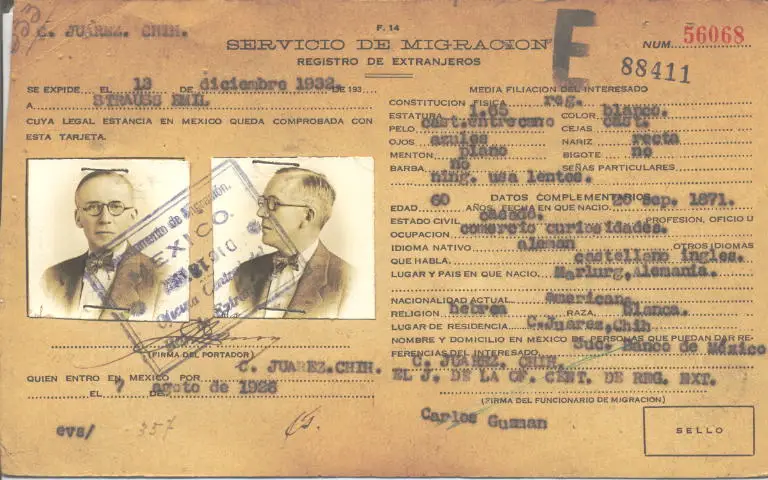 C. JUÁREZ. CHIH.
F. 14
SERVICIO DE MIGRACION
REGISTRO DE EXTRANJEROS
E
NUM. 56068
88411
SE EXPIDE EL 13 DE diciembre 1932. DE 193
A STRAUSS EMIL
CUYA LEGAL ESTANCIA EN MEXICO QUEDA COMPROBADA CON
ESTA TARJETA.
Departamento de Migración.
MEXICO.
DIC
Oficina Central
(FIRMA DEL PORTADOR)
C. JUAREZ.CHIH.
QUIEN ENTRO EN MEXICO POR
EL 7 DE agoto de 1926
evs/ 357
MEDIA FILIACION DEL INTERESADO
CONSTITUCION FISICA reg.
ESTATURA 1.65 COLOR blanco.
PELO cast.entrecano CEJAS cast.
OJOS azules NARIZ recta
MENTON plano BIGOTE no
BARBA no SEÑAS PARTICULARES
ning. usa lentos.
DATOS COMPLEMENTARIOS
EDAD 60 AÑOS, FECHA EN QUE NACIO. 26 Sep. 1871.
ESTADO CIVIL casado. PROFESION, OFICIO U
OCUPACION comercio curiosidades.
IDIOMA NATIVO aleman OTROS IDIOMAS
QUE HABLA. castellano ingles.
LUGAR Y PAIS EN QUE NACIO. Marlurg, Alemania.
NACIONALIDAD ACTUAL americana
RELIGION hebrea RAZA blanca.
LUGAR DE RESIDENCIA C.Juarez,Chih
NOMBRE Y DOMICILIO EN MEXICO DE PERSONAS QUE PUEDAN DAR RE-
FERENCIAS DEL INTERESADO. Suc. Banco de México
C. JUAREZ, CHIH.
EL J. DE LA OF. CENT. DE REG. EXT.
(FIRMA DEL FUNCIONARIO DE MIGRACION)
Carlos Guzman
SELLO